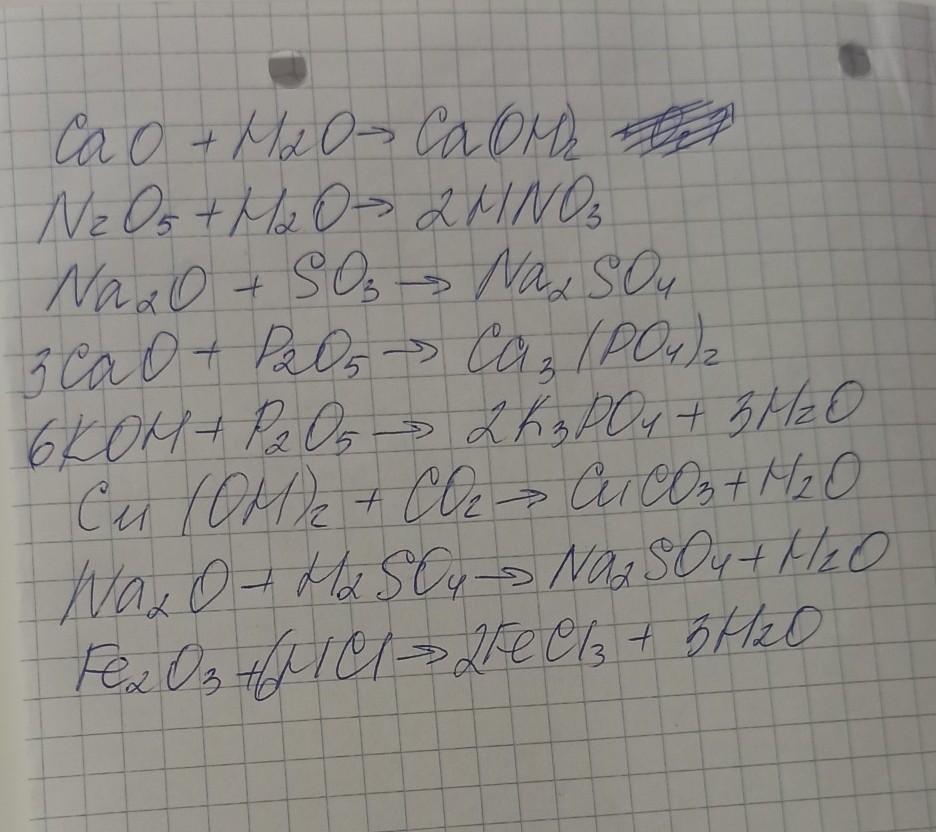 CaO + H2O → Ca(OH)2
N2O5 + H2O → 2HNO3
Na2O + SO3 → Na2SO4
3CaO + P2O5 → Ca3(PO4)2
6KOH + P2O5 → 2K3PO4 + 3H2O
Cu(OH)2 + CO2 → CuCO3 + H2O
Na2O + H2SO4 → Na2SO4 + H2O
Fe2O3 + 6HCl → 2FeCl3 + 3H2O